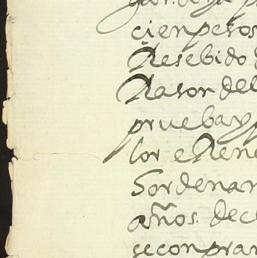 cien pesos
Resebido
Rason del
prueba y p
lor e Rene
Sordenar
años dec
se conprar